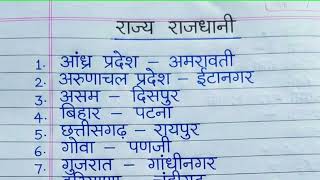 राज्य राजधानी
1. आंध्र प्रदेश – अमरावती
2. अरुणाचल प्रदेश – ईटानगर
3. असम – दिसपुर
4. बिहार – पटना
5. छत्तीसगढ़ – रायपुर
6. गोवा – पणजी
7. गुजरात – गांधीनगर